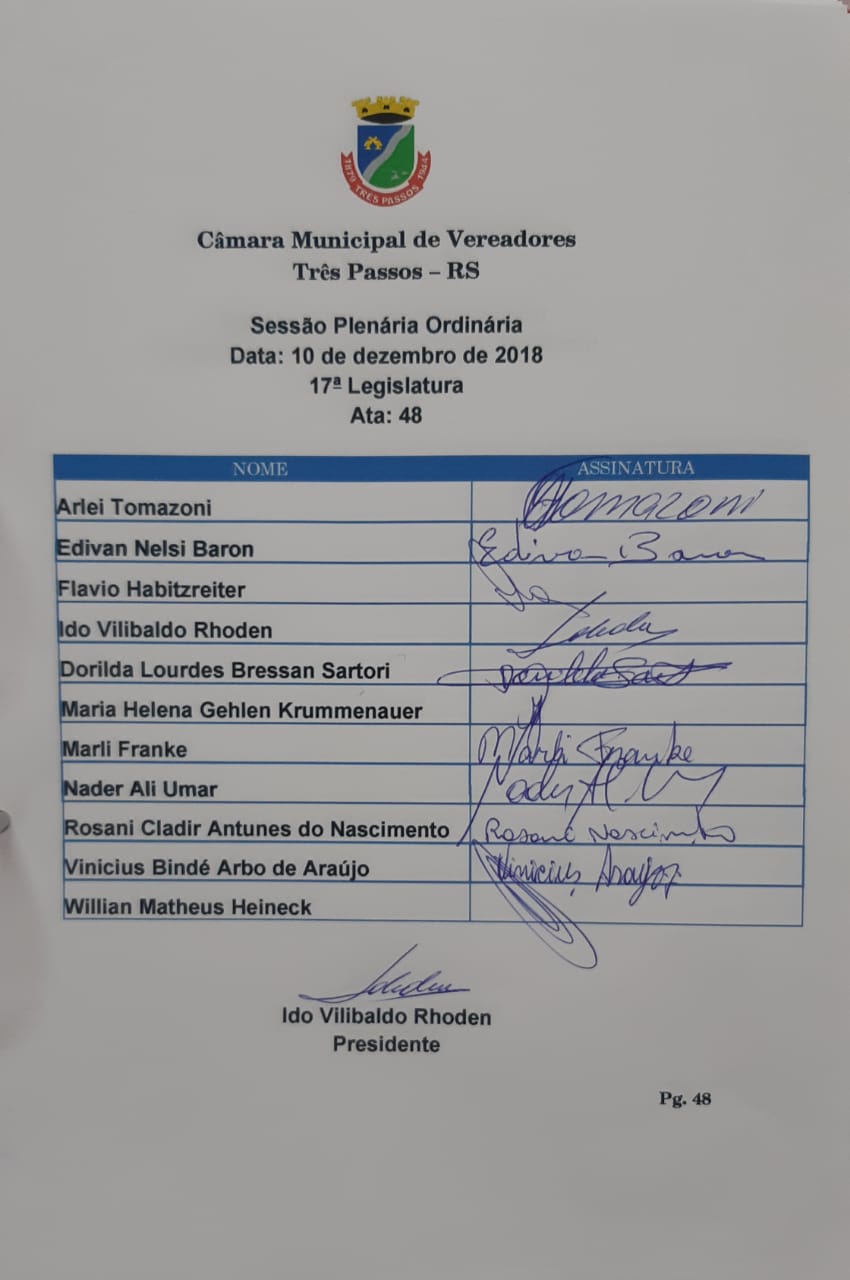 1879 TRÊS PASSOS 1944
Câmara Municipal de Vereadores
Três Passos – RS
Sessão Plenária Ordinária
Data: 10 de dezembro de 2018
17ª Legislatura
Ata: 48
NOME ASSINATURA
Arlei Tomazoni Tomazoni
Edivan Nelsi Baron Edivan Baron
Flavio Habitzreiter
Ido Vilibaldo Rhoden
Dorilda Lourdes Bressan Sartori
Maria Helena Gehlen Krummenauer
Marli Franke Marli Franke
Nader Ali Umar
Rosani Cladir Antunes do Nascimento Rosani Nascimento
Vinicius Bindé Arbo de Araújo Vinicius Araújo
Willian Matheus Heineck
Ido Vilibaldo Rhoden
Presidente
Pg. 48